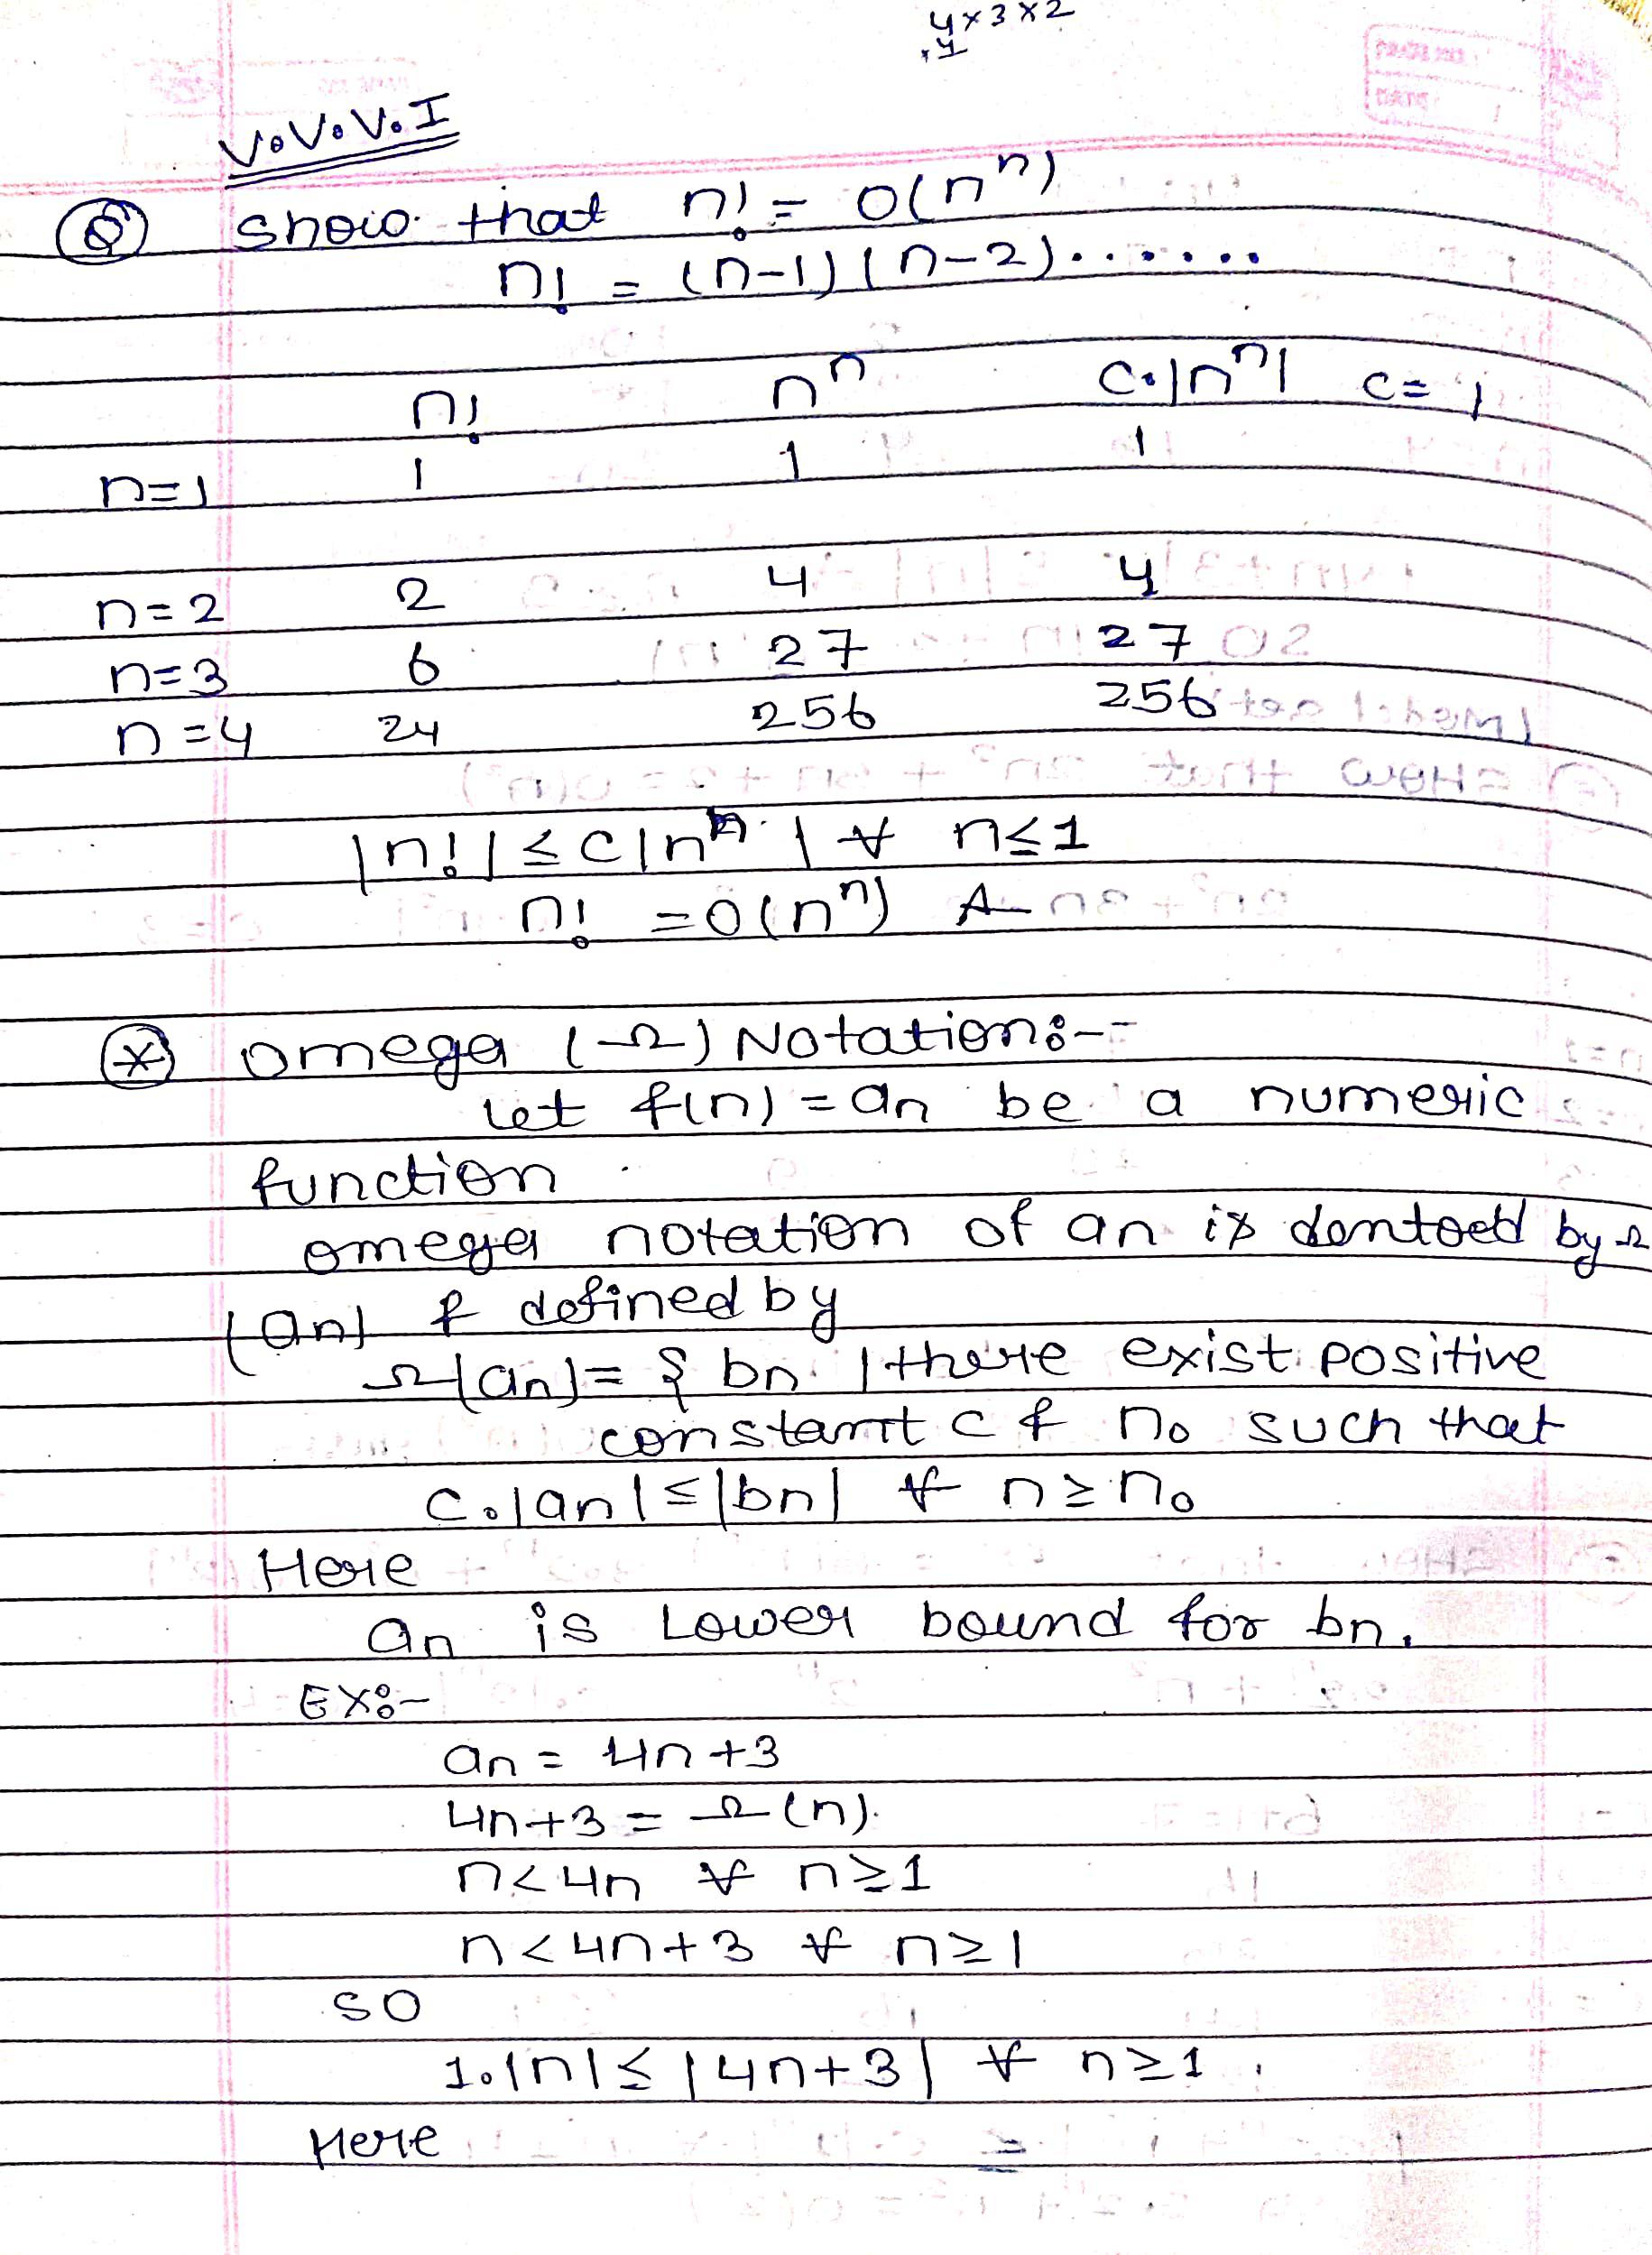 4×3×2
×1
V.V.V.I
Q show that n! = O(nⁿ)
n! = (n-1)(n-2).......
n! nⁿ C.|nⁿ| C=1
n=1 1 1 1
n=2 2 4 4
n=3 6 27 27
n=4 24 256 256
|n!| ≤ C|nⁿ| ∀ n≤1
n! = O(nⁿ) A
* omega (Ω) Notation:--
Let f(n) = an be a numeric
function
omega notation of an is dentoed by Ω
(an) & defined by
Ω(an) = { bn | there exist positive
constant C & n₀ such that
C.|an| ≤ |bn| ∀ n ≥ n₀
Here
an is Lower bound for bn.
Ex:-
an = 4n+3
4n+3 = Ω(n).
n<4n ∀ n≥1
n<4n+3 ∀ n≥1
so
1.|n| ≤ |4n+3| ∀ n≥1.
Here